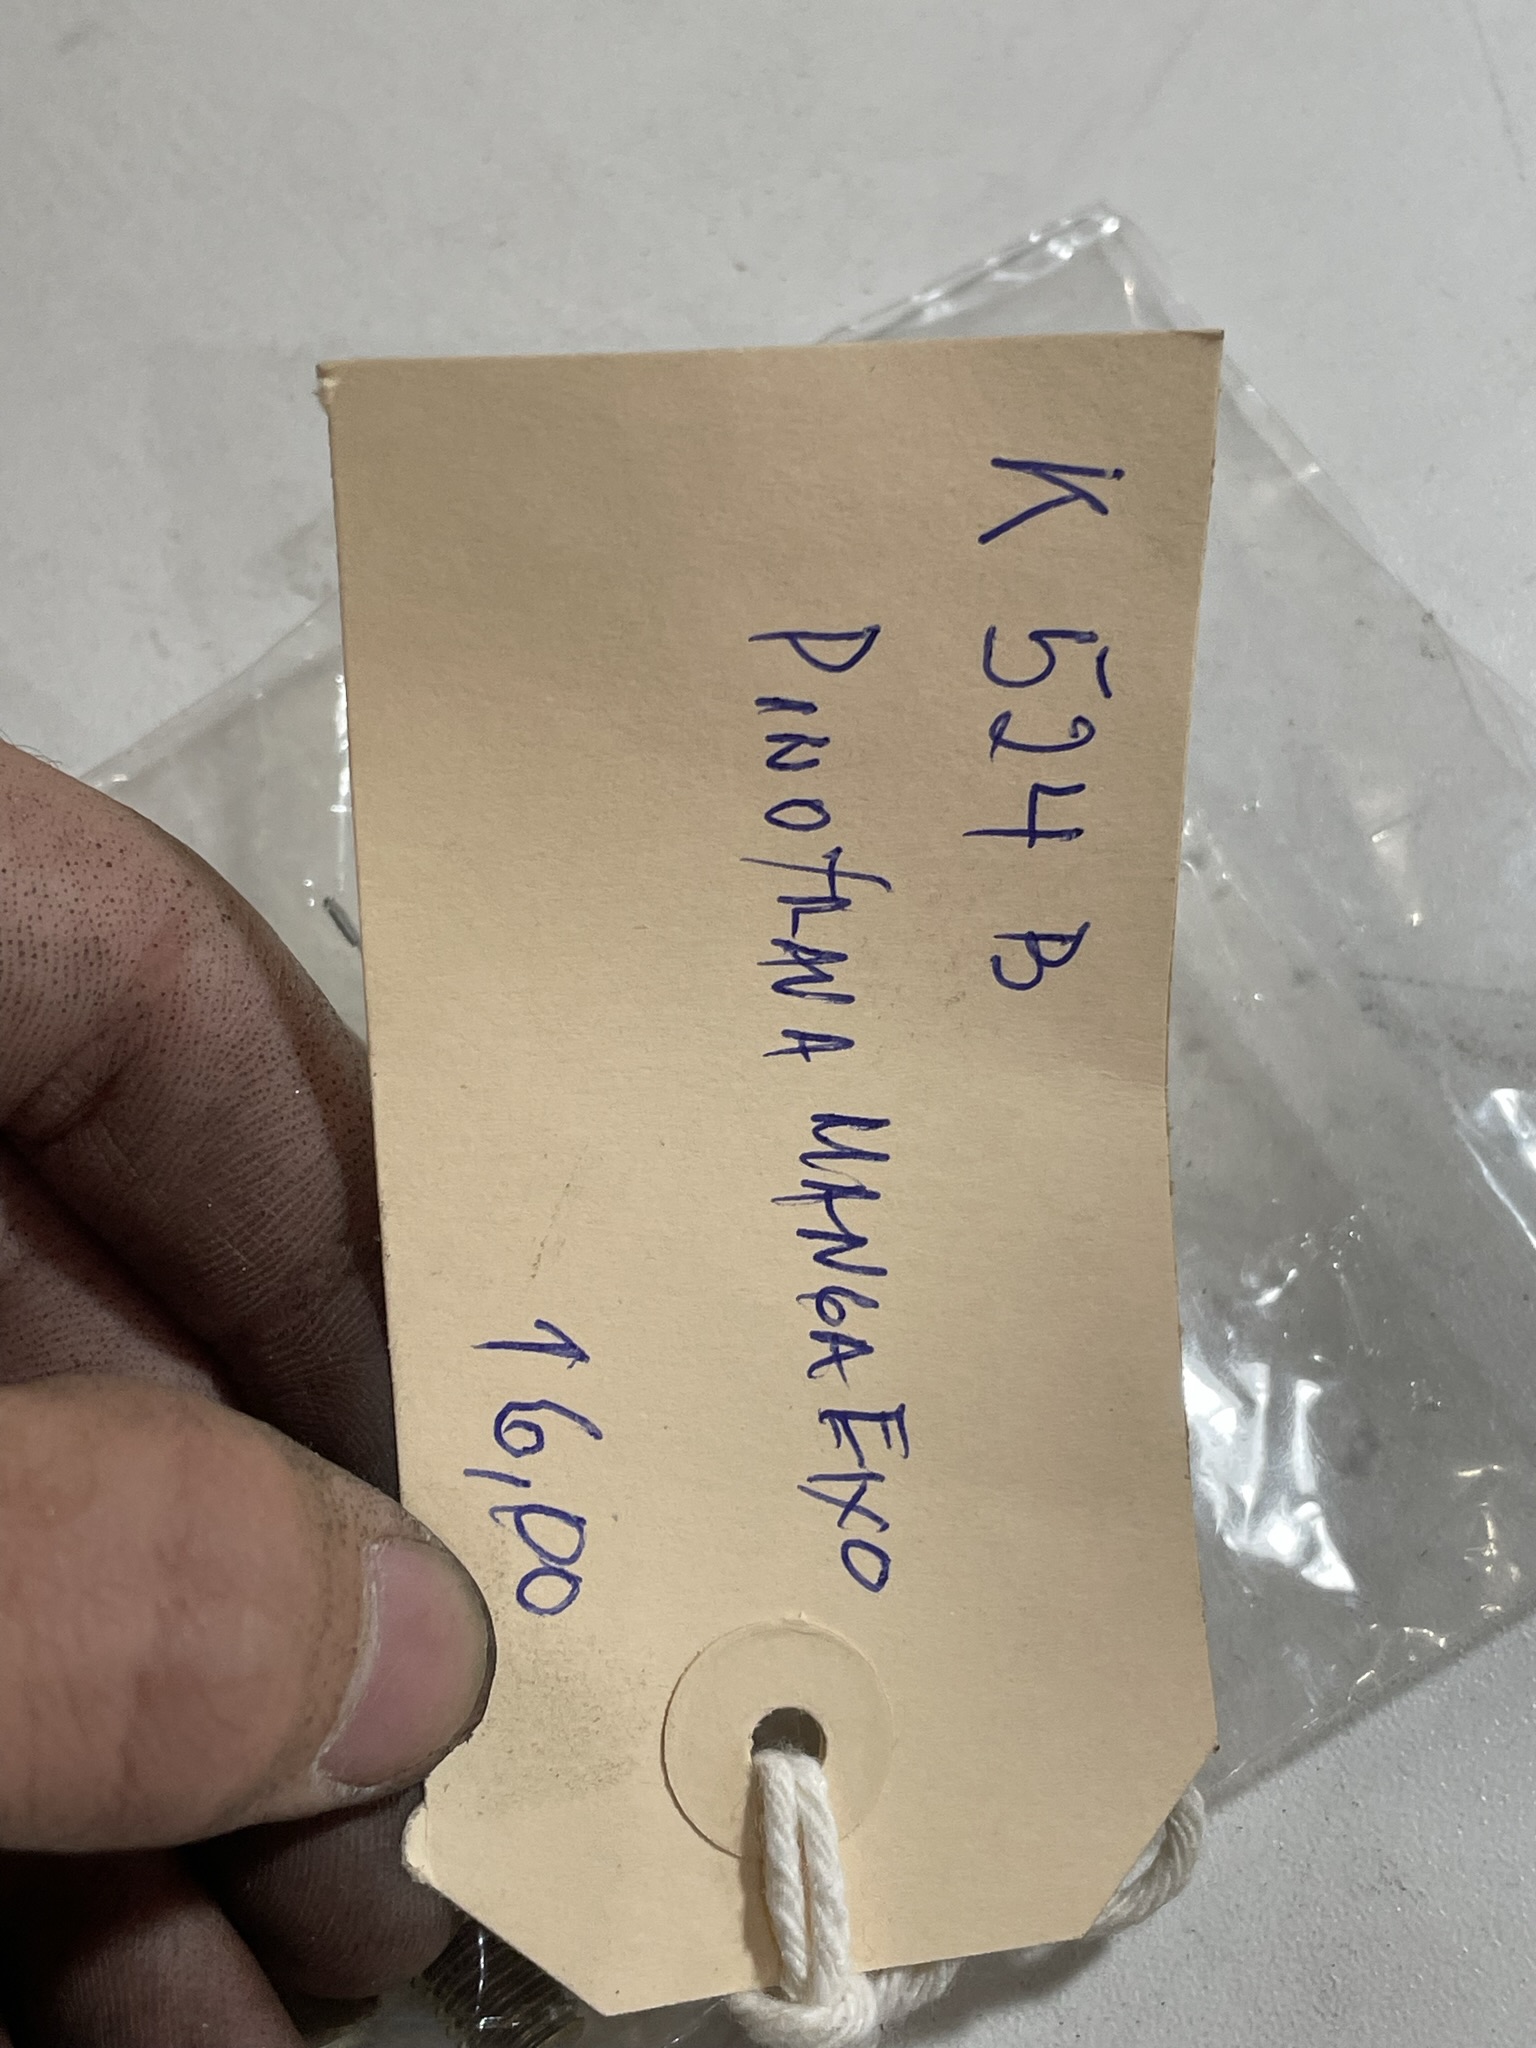 K 524 B
PINO/LANA MANGA EIXO
16,00